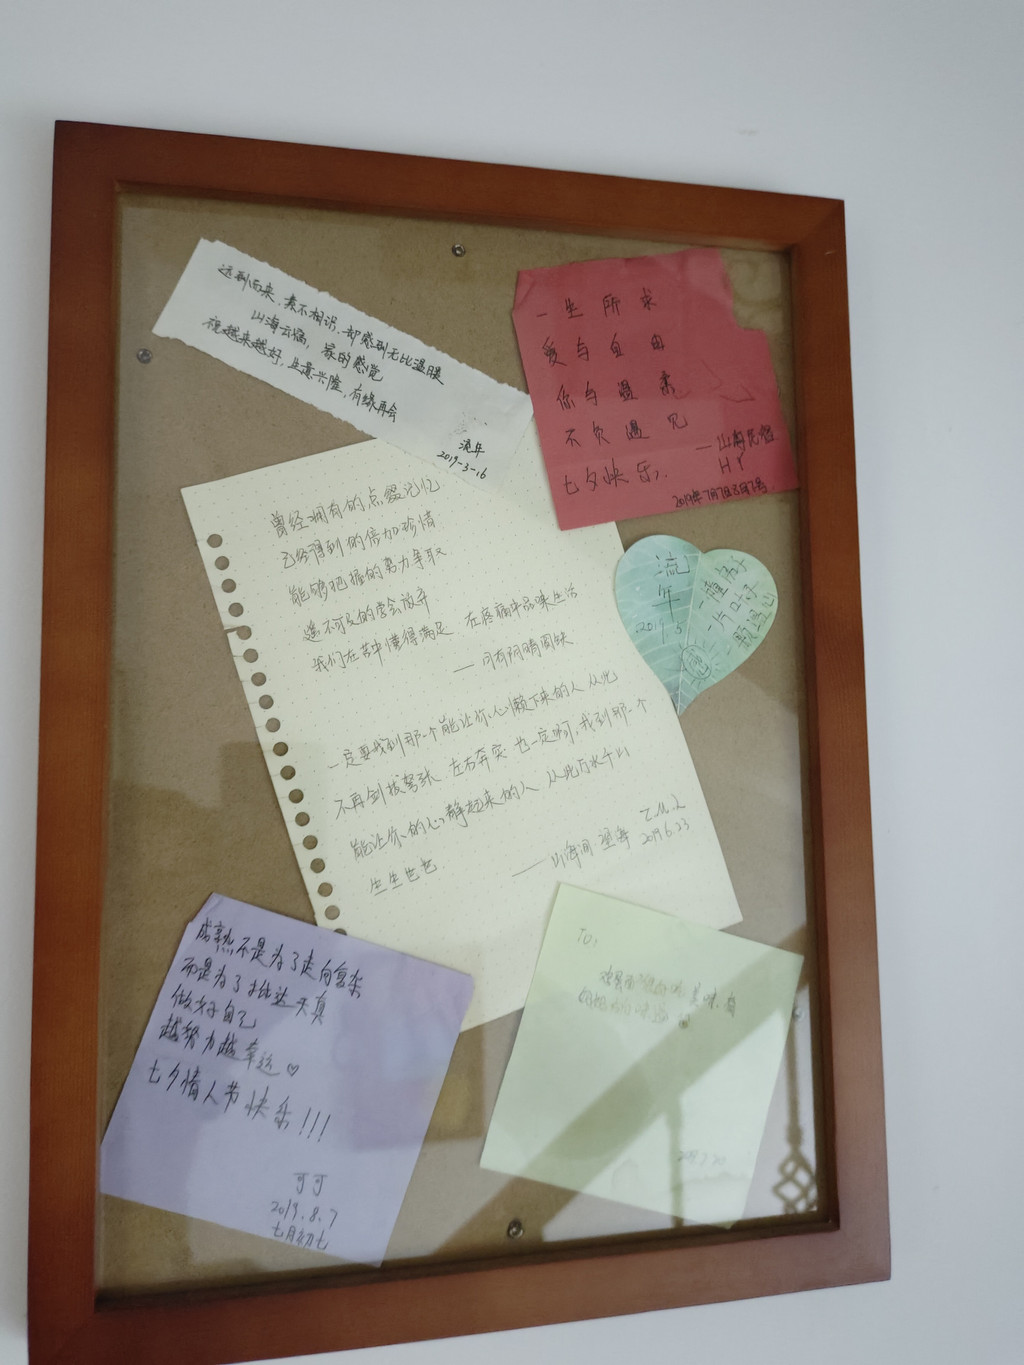 远到而来,素不相识,却感到无比温暖
山海云端,家的感觉
祝越来越好,生意兴隆,有缘再会
流年
2019-3-16
一生所求
爱与自由
你与温柔
不负遇见
七夕快乐
—山海民宿
HY
2019年7月7日8月7号
曾经拥有的点缀记忆
已经得到的倍加珍惜
能够把握的努力争取
遥不可及的学会放弃
我们在苦中懂得满足 在疼痛中品味生活
——月有阴晴圆缺
一定要找到那一个能让你心颤下来的人 从此
不再剑拔弩张、左右奔突 也一定啊,找到那一个
能让你的心静起来的人 从此万水千山
生生世世.
——山海间 望海
Z.M.L
2019.6.23
流年
2019.5
一片叶子
成熟不是为了走向复杂
而是为了抵达天真
做好自己
越努力越幸运♡
七夕情人节快乐!!!
可可
2019.8.7
七月初七
TO: